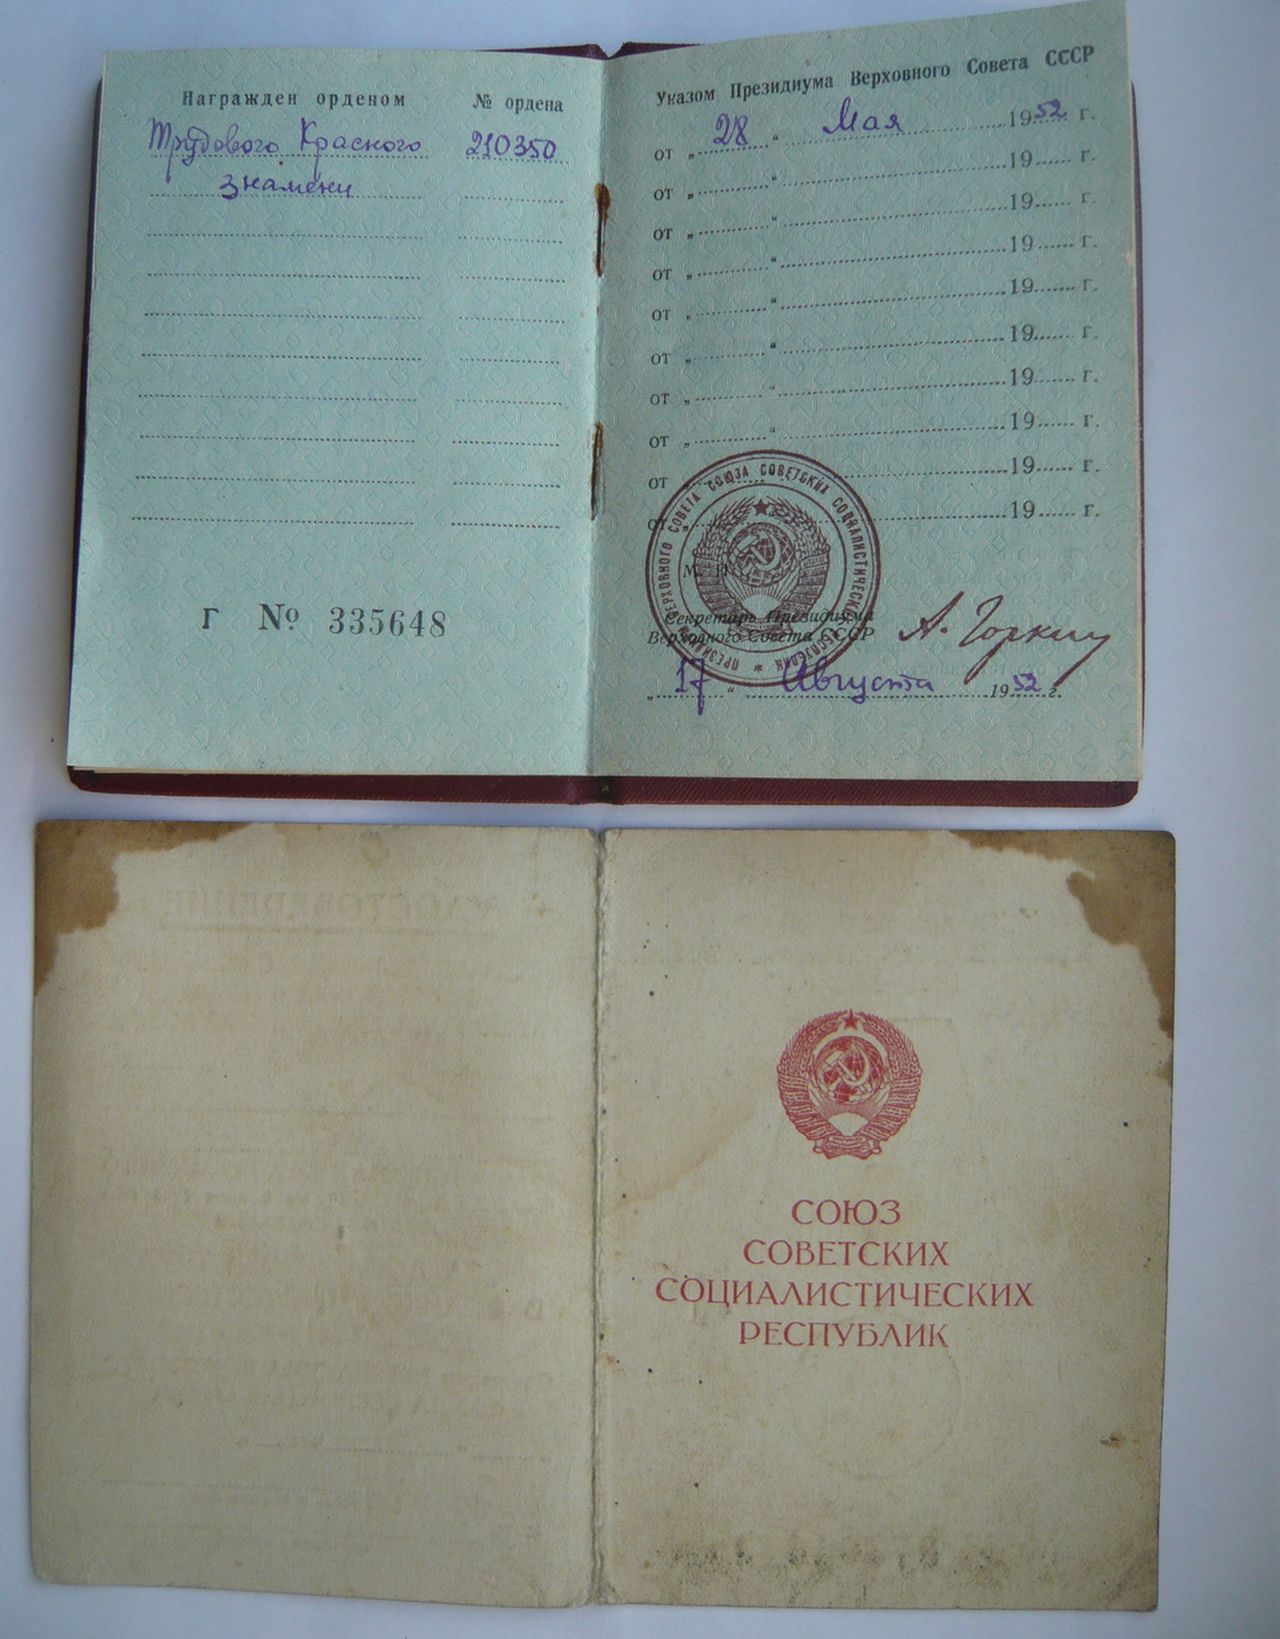 Награжден орденом № ордена
Трудового Красного 210350
знамени
Г № 335648
Указом Президиума Верховного Совета СССР
от „ 28 “ Мая 1952 г.
от „ “ 19 г.
от „ “ 19 г.
от „ “ 19 г.
от „ “ 19 г.
от „ “ 19 г.
от „ “ 19 г.
от „ “ 19 г.
от „ 19 г.
от „ 19 г.
ПРЕЗИДИУМ ВЕРХОВНОГО СОВЕТА СОЮЗА СОВЕТСКИХ СОЦИАЛИСТИЧЕСКИХ РЕСПУБЛИК
М. П.
Секретарь Президиума
Верховного Совета СССР А. Горкин
„ 17 “ Августа 1952 г.
УДОСТОВЕРЕНИЕ
СОЮЗ
СОВЕТСКИХ
СОЦИАЛИСТИЧЕСКИХ
РЕСПУБЛИК